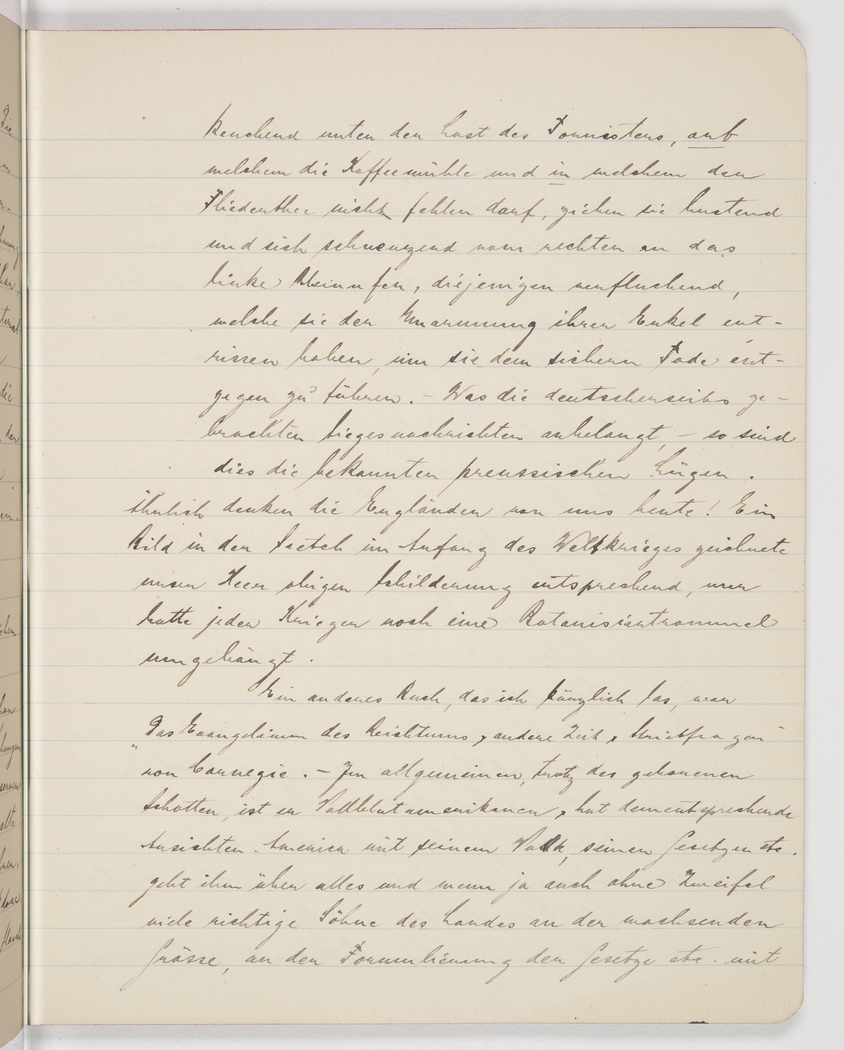 keuchend unter der Last des Tournisters, auf
welchem die Kaffeemühle und in welchem der
Fliederthee nicht fehlen darf, ziehen sie hustend
und sich schneuzend vom rechten an das
linke Rheinufer, diejenigen verfluchend,
welche sie der Umarmung ihrer Enkel ent-
rissen haben, um sie dem sichern Tode ent-
gegen zu führen. - Was die deutscherseits ge-
brachten Siegesnachrichten anbelangt, - so sind
dies die bekannten preussischen Lügen.
Ähnlich denken die Engländer von uns heute! Ein
Bild in der Sketch im Anfang des Weltkrieges zeichnete
unser Heer obigen Schilderung entsprechend, nur
hatte jeder Krieger noch eine Botanisiertrommel
umgehängt.
Ein anderes Buch, das ich kürzlich las, war
"Das Evangelium des Reichtums, & andere Zeit & Streitfragen"
von Carnegie. - Im allgemeinen, trotz des geborenen
Schotten, ist er Vollblutamerikaner, & hat dementsprechende
Ansichten. America mit seinem Volk, seinen Gesetzen etc.
geht ihm über alles und wenn ja auch ohne Zweifel
viele richtige Söhne des Landes an der wachsenden
Grösse, an der Formulierung der Gesetze etc. mit